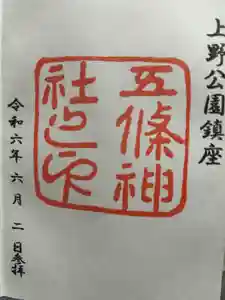 上野公園鎮座
五條神
社之印
令和六年六月二日参拝